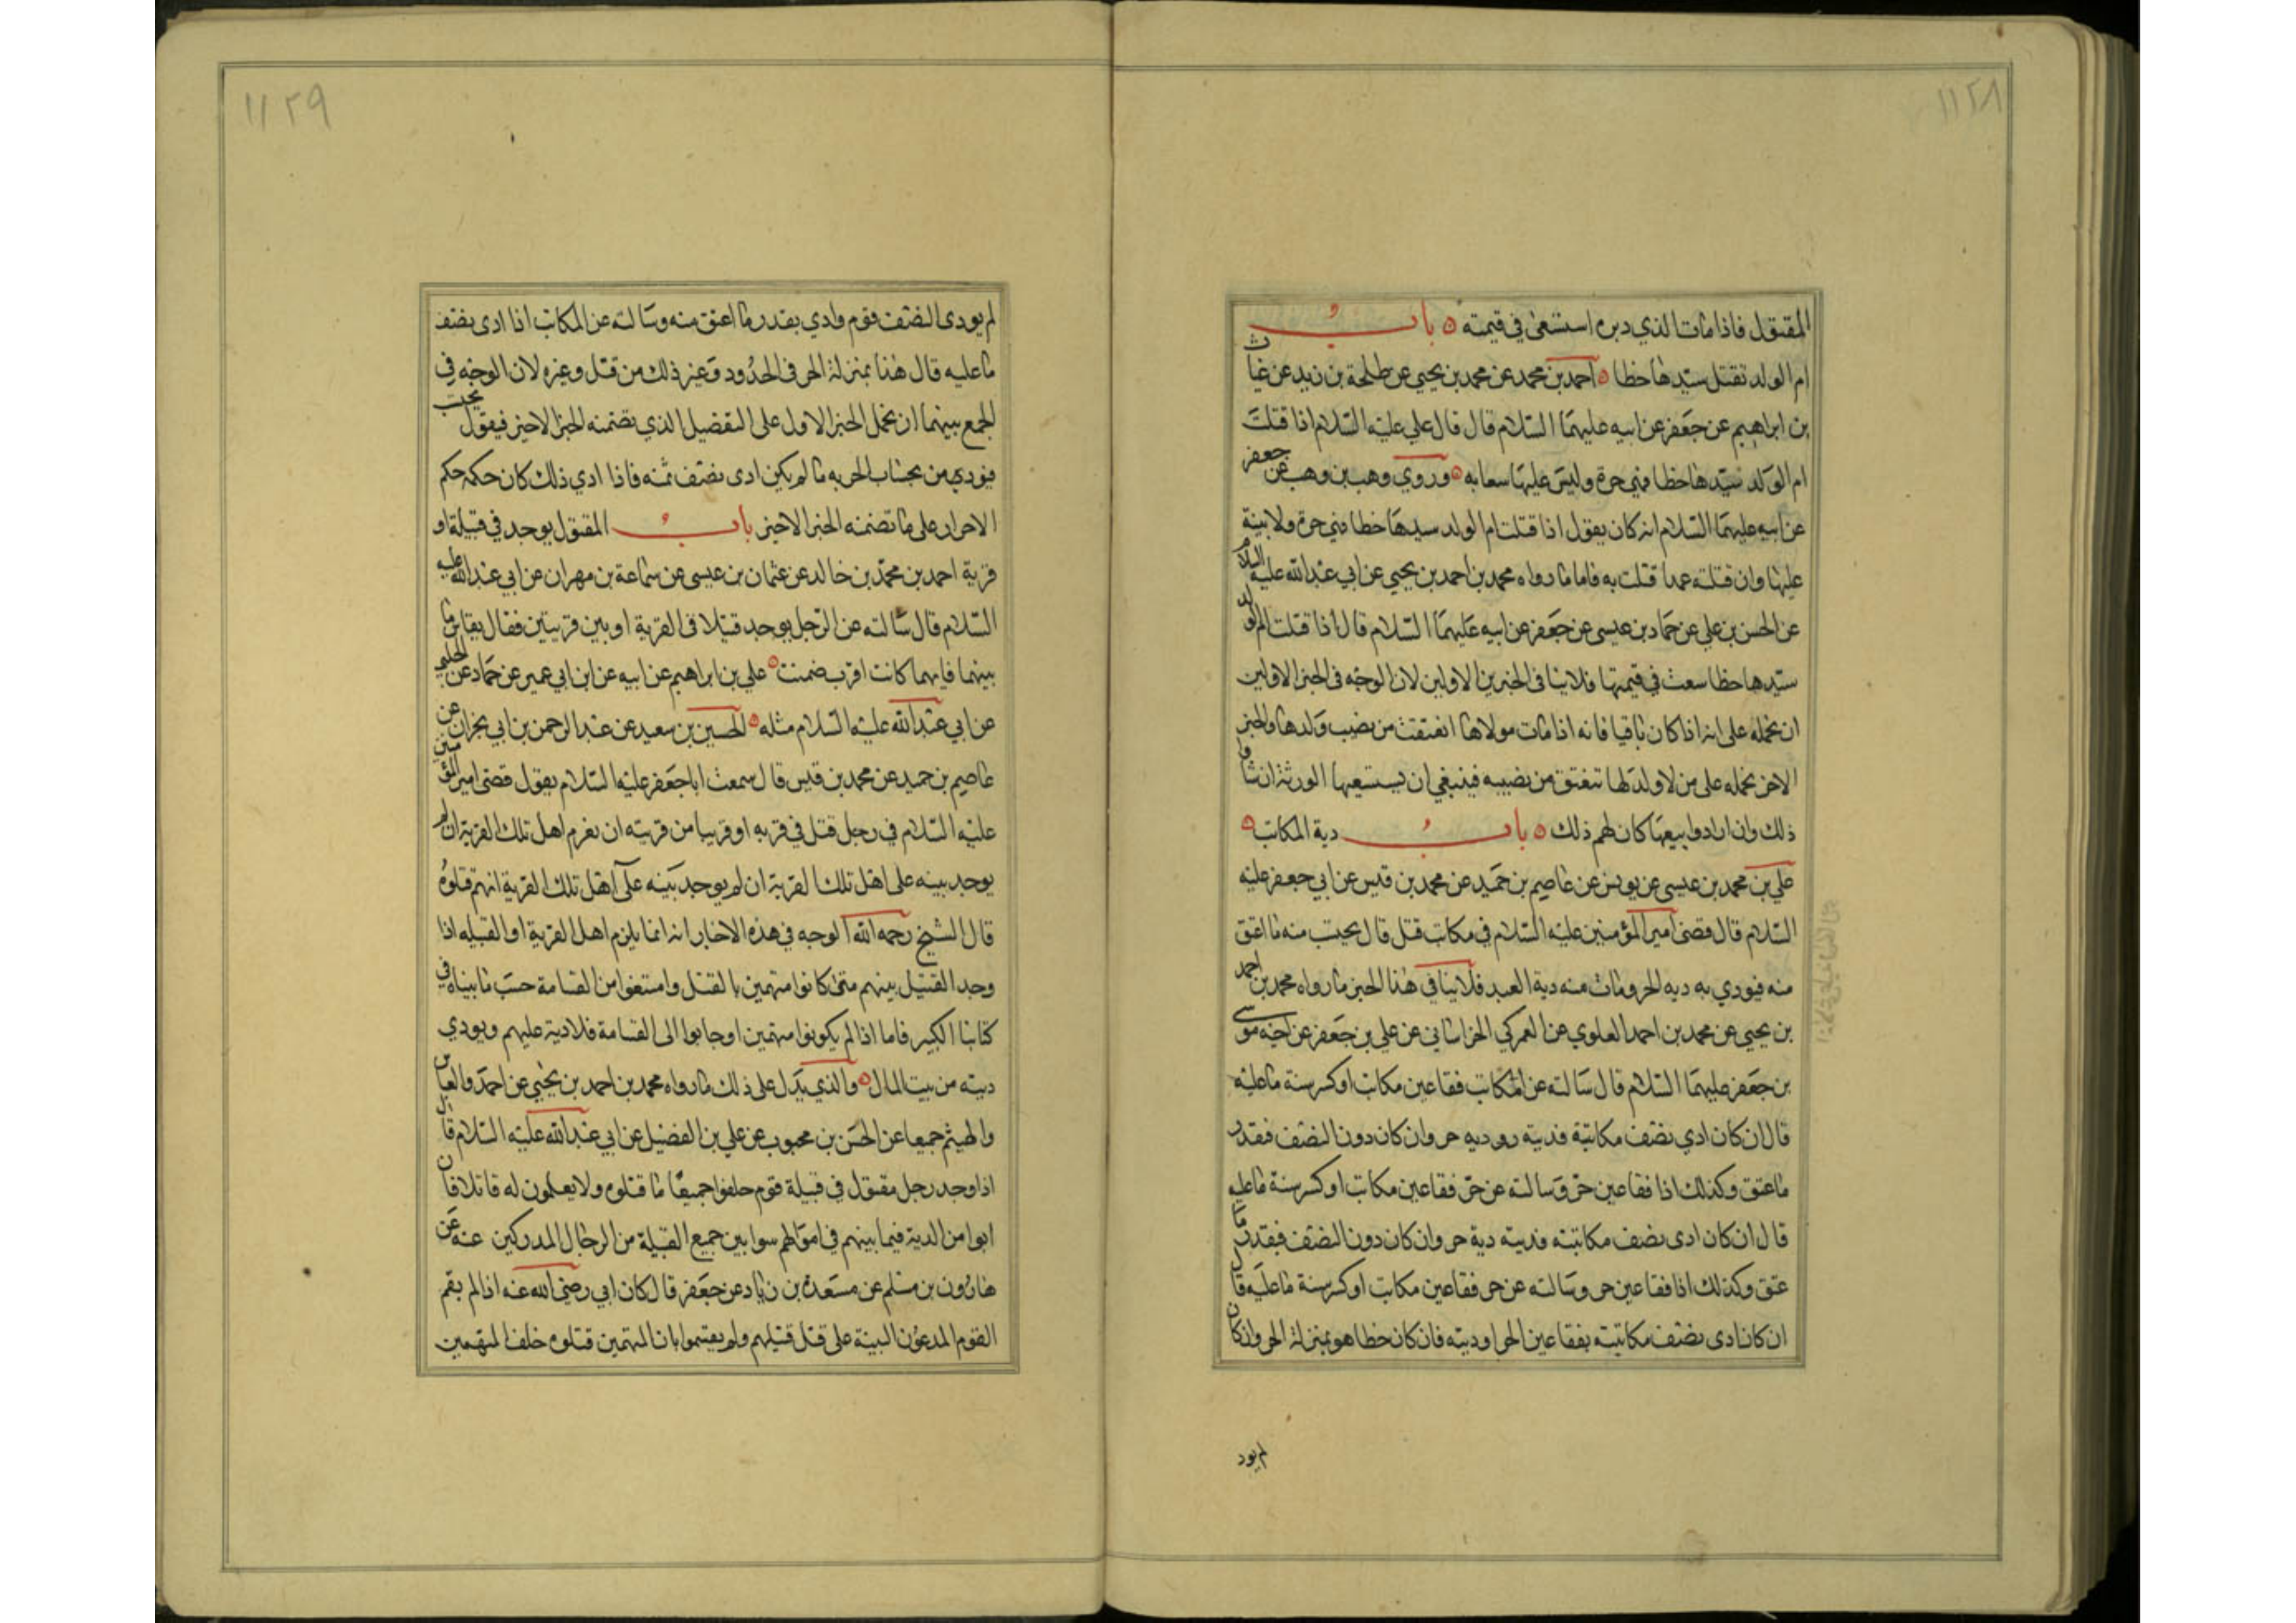 ١١٢٨
المقتول فاذا مات الذي دبره استسعى في قيمته ٥ باب
ام الولد تقتل سيدها خطا ٥ احمد بن محمد عن محمد بن يحيى عن طلحة بن زيد عن غياث
بن ابراهيم عن جعفر عن ابيه عليهما السلام قال قال علي عليه السلام اذا قتلت
ام الولد سيدها خطا فهي حرة وليس عليها سعايه ٥ وروي وهب بن وهب عن جعفر
عن ابيه عليهما السلام انه كان يقول اذا قتلت ام الولد سيدها خطا فهي حرة ولا بينة
عليها وان قتلته عمدا قتلت به فاما ما رواه محمد بن احمد بن يحيى عن ابي عبدالله عليه السلام
عن الحسن بن علي عن حماد بن عيسى عن جعفر عن ابيه عليهما السلام قال اذا قتلت ام الولد
سيدها خطا سعت في قيمتها فلا ينافي الخبرين الاولين لان الوجه في الخبر الاولين
ان نحمله على انه اذا كان باقيا فانه اذا مات مولاها انعتقت من نصيب ولدها والخبر
الاخر نحمله على من لا ولد لها تنعتق من نصيبه فينبغي ان يستسعيها الورثة ان شاوا
ذلك وان ارادوا بيعها كان لهم ذلك ٥ باب دية المكاتب ٥
علي بن محمد بن عيسى عن يونس عن عاصم بن حميد عن محمد بن قيس عن ابي جعفر عليه
السلام قال قضى امير المؤمنين عليه السلام في مكاتب قتل قال يحسب منه ما اعتق
منه فيودي به ديه الحر وماث منه دية العبد فلا ينافي هذا الخبر ما رواه محمد بن احمد
بن يحيى عن محمد بن احمد العلوي عن العمركي الخراساني عن علي بن جعفر عن اخيه موسى
بن جعفر عليهما السلام قال سالته عن المكاتب فقا عين مكاتب او كسر سنة ما عليه
قال ان كان ادي نصف مكاتبة فديته روديه حر وان كان دون النصف فقدر
ما عتق وكذلك اذا فقا عين حر وسالته عن حر فقا عين مكاتب او كسر سنة ما عليه
قال ان كان ادى نصف مكاتبته فديته دية حر وان كان دون النصف فبقدر ما
عتق وكذلك اذا فقا عين حر وسالته عن حر فقا عين مكاتب او كسر سنة ما عليه قال
ان كان ادى نصف مكاتبته بفقا عين الحر او ديته فان كان خطا هو بمنزلة الحر وان كان
لم يود
١١٢٩
لم يودى النصف قوم وادي بقدر ما اعتق منه وسالته عن المكاتب اذا ادى نصف
ما عليه قال هذا بمنزلة الحر في الحدود وغير ذلك من قتل وغيره لان الوجه في
الجمع بينهما ان نحمل الخبر الاول على التفصيل الذي تضمنه الخبر الاخير فيقول يحسب
فيودي من بحساب الحريه ما لم يكن ادى نصف ثمنه فاذا ادي ذلك كان حكمه حكم
الاحرار على ما تضمنه الخبر الاخير باب المقتول يوجد في قبيلة او
قرية احمد بن محمد بن خالد عن عثمان بن عيسى عن سماعة بن مهران عن ابي عبدالله عليه
السلام قال سالته عن الرجل يوجد قتيلا في القرية او بين قريتين فقال يقاس ما
بينهما فايهما كانت اقرب ضمنت ٥ علي بن ابراهيم عن ابيه عن ابن ابي عمير عن حماد عن الحلبي
عن ابي عبدالله عليه السلام مثله ٥ الحسين بن سعيد عن عبدالرحمن بن ابي نجران عن
عاصم بن حميد عن محمد بن قيس قال سمعت ابا جعفر عليه السلام يقول قضى امير المؤمنين
عليه السلام في رجل قتل في قريه او قريبا من قريته ان يغرم اهل تلك القرية ان لم
يوجد بينه على اهل تلك القرية ان لم يوجد بينه على اهل تلك القرية انهم قتلوه
قال الشيخ رحمه الله الوجه في هذه الاخبار انه انما يلزم اهل القرية او القبيله اذا
وجد القتيل بينهم متى كانوا متهمين بالقتل وامتنعوا من القسامة حسب ما بيناه في
كتابنا الكبير فاما اذا لم يكونوا متهمين او جابوا الى القسامة فلا دية عليهم ويودي
ديته من بيت المال ٥ والذي يدل على ذلك ما رواه محمد بن احمد بن يحيى عن احمد والعباس
والهيثم جميعا عن الحسن بن محبوب عن علي بن الفضيل عن ابي عبدالله عليه السلام قال
اذا وجد رجل مقتول في قبيلة قوم حلفوا جميعا ما قتلوه ولا يعلمون له قاتلا فان
ابوا من الدية فيما بينهم في اموالهم سوا بين جميع القبيلة من الرجال المدركين عنه عن
هارون بن مسلم عن مسعدة بن زياد عن جعفر قال كان ابي رضي الله عنه اذا لم يقم
القوم المدعون البينة على قتل قتيلهم ولم يقسموا بان المتهمين قتلوه حلف المتهمين